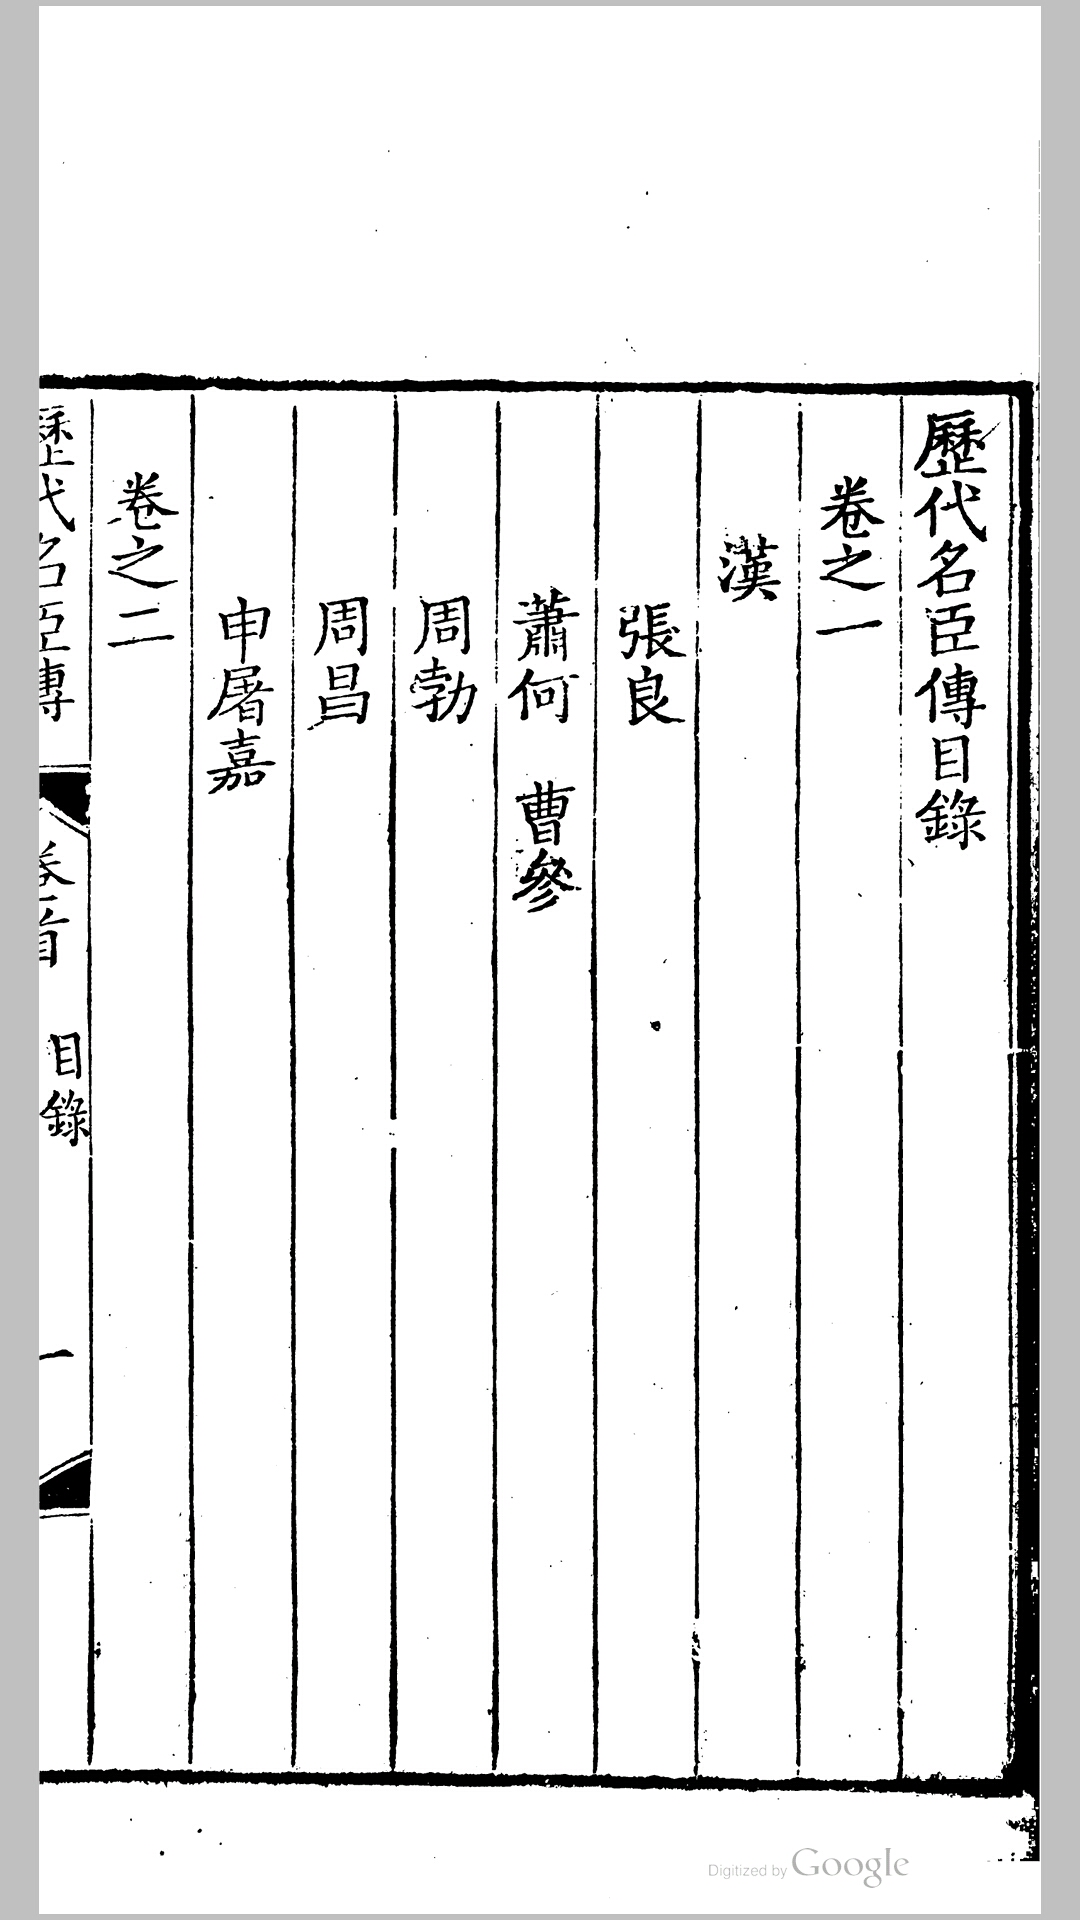 歷代名臣傳目錄
卷之一
漢
張良
蕭何　曹參
周勃
周昌
申屠嘉
卷之二
歷代名臣傳　卷首　目錄　一
Digitized by Google